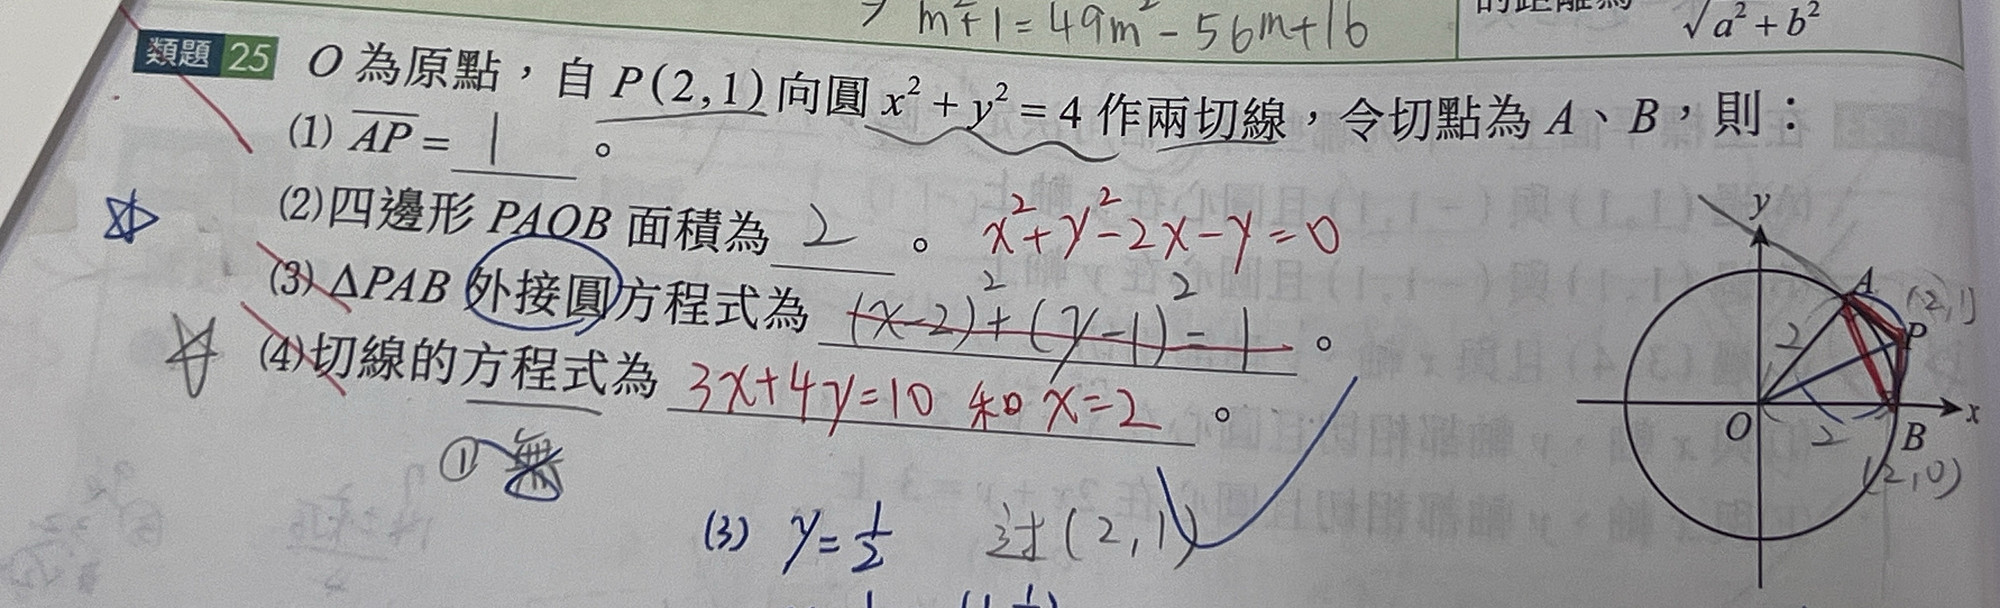 m²+1=49m²-56m+16
√a²+b²
類題 25 O 為原點，自 P(2,1) 向圓 x²+y²=4 作兩切線，令切點為 A、B，則：
(1) AP= 1 。
(2)四邊形 PAOB 面積為 2 。 x²+y²-2x-y=0
(3) △PAB 外接圓方程式為 (x-2)²+(y-1)²=1 。
(4)切線的方程式為 3x+4y=10 和 x=2 。
① 無
(3) y=1/2 过(2,1)
y
A
(2,1)
P
2
O
2
B
x
(2,0)